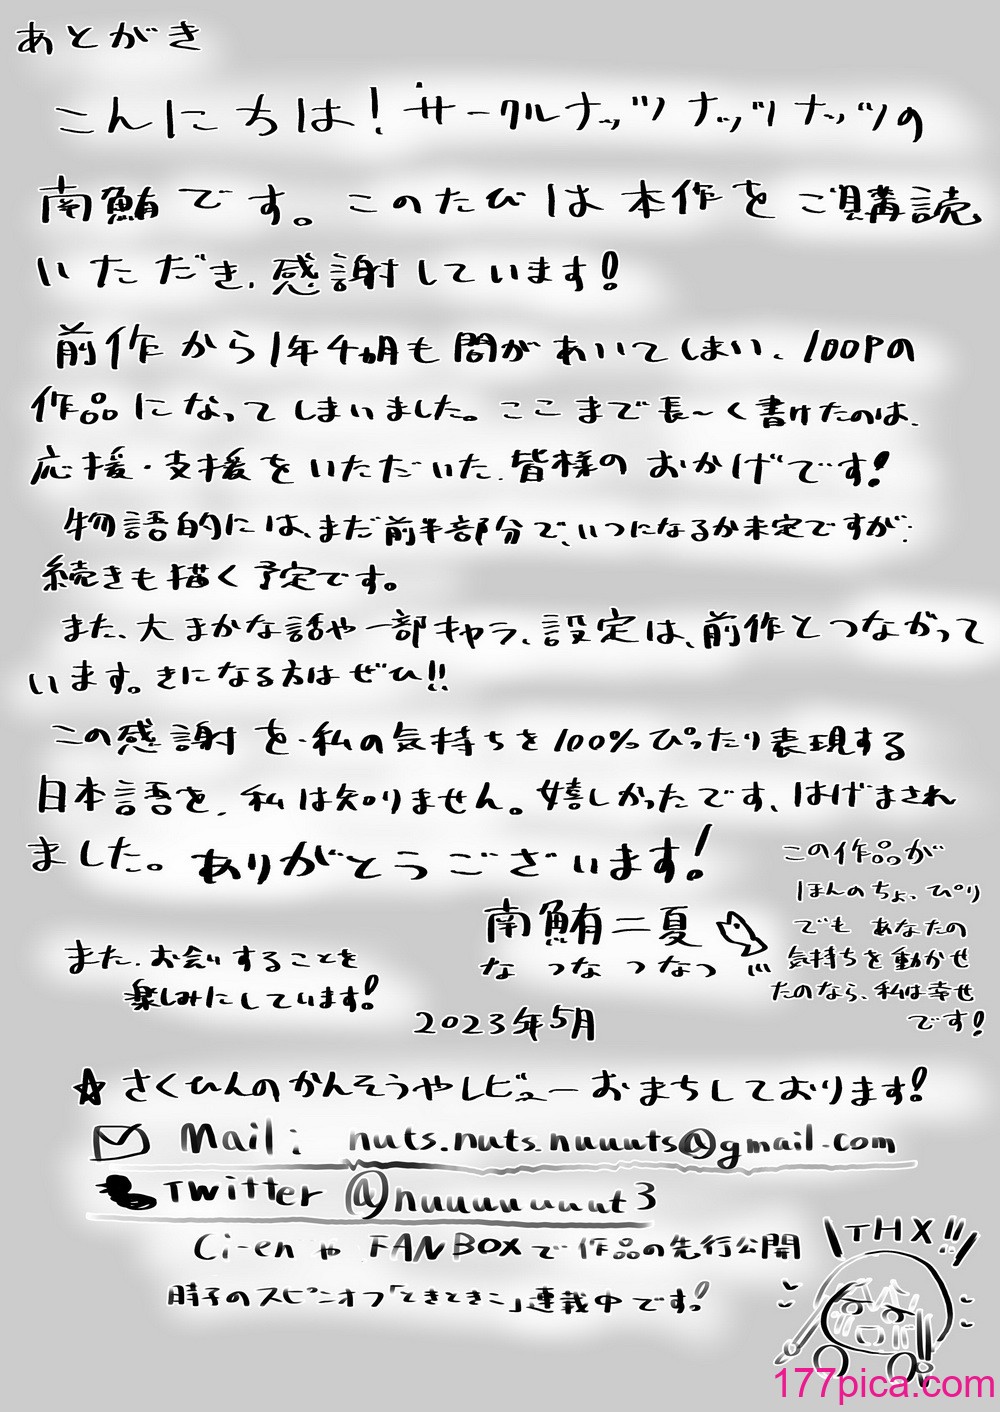 あとがき
こんにちは！サークルナッツナッツナッツの
南鮪です。このたびは本作をご購読
いただき、感謝しています！
前作から1年半胡も間があいてしまい、100Pの
作品になってしまいました。ここまで長〜く書けたのは、
応援・支援をいただいた、皆様のおかげです！
物語的には、まだ前半部分で、いつになるか未定ですが、
続きも描く予定です。
また、大まかな話や一部キャラ、設定は、前作とつながって
います。きになる方はぜひ！！
この感謝を、私の気持ちを100%ぴったり表現する
日本語を、私は知りません。嬉しかったです、はげまされ
ました。ありがとうございます！
この作品が
ほんのちょっぴり
でもあなたの
気持ちを動かせ
たのなら、私は幸せ
です！
南鮪二夏
なつなつなつ
また、お会いすることを
楽しみにしています！
2023年5月
☆さくひんのかんそうやレビューおまちしております！
Mail: nuts.nuts.nuuuts@gmail.com
Twitter @nuuuuuuut3
Ci-enやFANBOXで作品の先行公開
時子のスピンオフ「ときときこ」連載中です！
THX!!
177pica.com